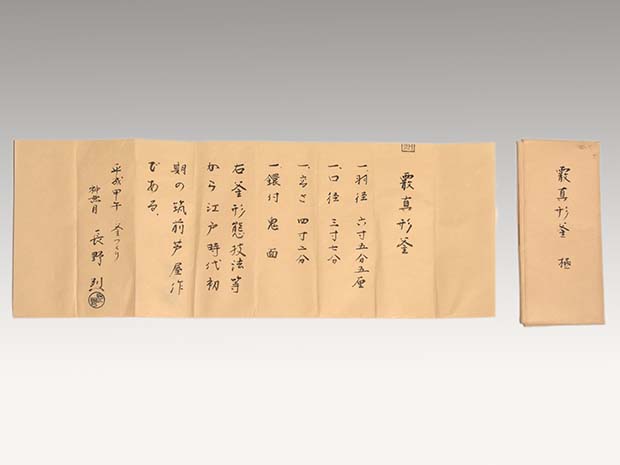 霰真形釜
一、羽径 六寸五分五厘
一、口径 三寸七分
一、高さ 四寸二分
一、鐶付 鬼面
右釜形態技法等
から江戸時代初
期の筑前芦屋作
である。
平成甲午 釜つくり
神無月 長野烈
霰真形釜 極